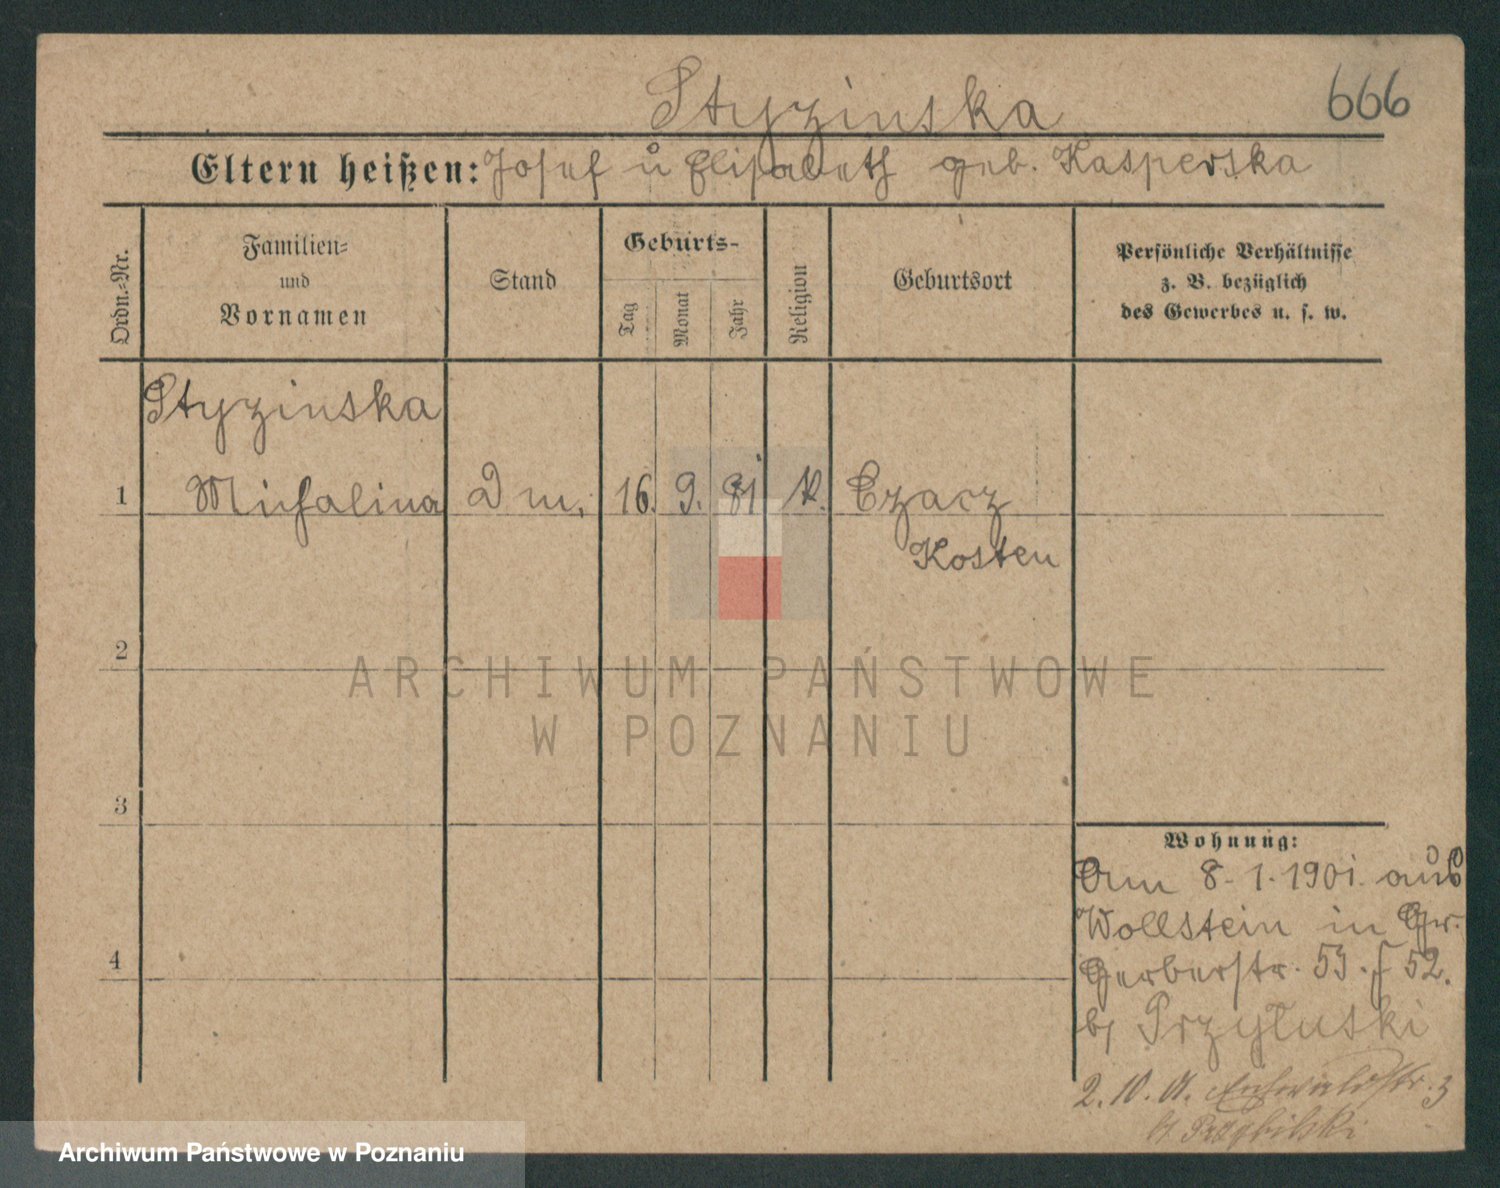 Styzinska
666
Eltern heißen: Josef u Elisabeth geb. Kasperska
Ordn.-Nr.
Familien-
und
Vornamen
Stand
Geburts-
Tag
Monat
Jahr
Religion
Geburtsort
Persönliche Verhältnisse
z. B. bezüglich
des Gewerbes u. s. w.
Styzinska
1 Michalina D m. 16. 9. 81 k. Czacz
Kosten
2
3
4
Wohnung:
Am 8. 1. 1901. aus
Wollstein in Gr.
Gerberstr. 53. f 52.
b/ Przyłuski
2. 10. 01. Eichwaldstr. 3
b/ Przybilski
ARCHIWUM PAŃSTWOWE
W POZNANIU
Archiwum Państwowe w Poznaniu